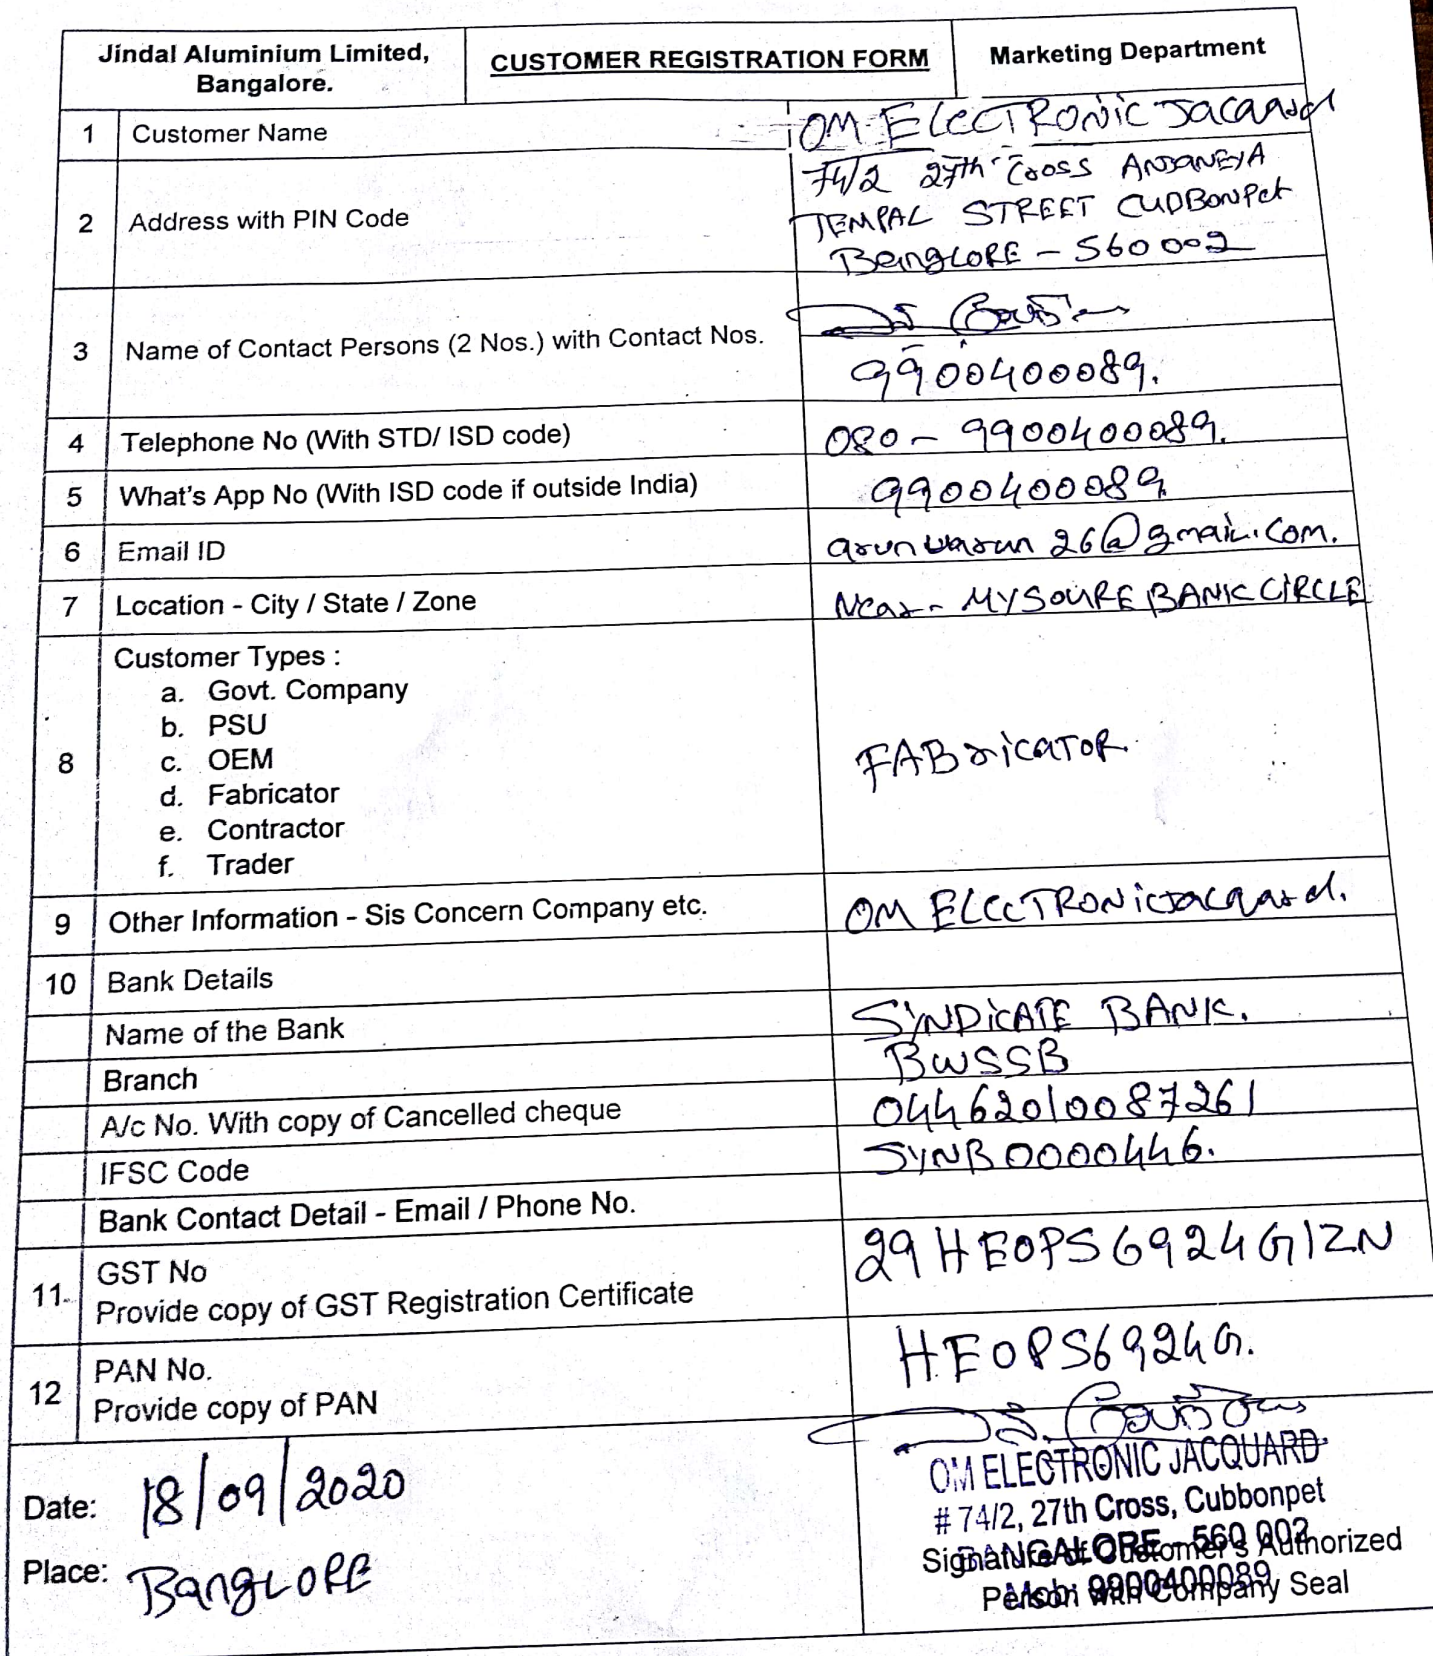 Jindal Aluminium Limited,
Bangalore.
CUSTOMER REGISTRATION FORM
Marketing Department
1 Customer Name OM ELECCTRONIC Jacaard
2 Address with PIN Code
74/2 27th Cross ANJANEYA
TEMPAL STREET CUDBONPet
BengLORE - 560 002
3 Name of Contact Persons (2 Nos.) with Contact Nos.
9900400089.
4 Telephone No (With STD/ ISD code) 080 - 9900400089.
5 What's App No (With ISD code if outside India) 9900400089
6 Email ID arunvarun 26@gmail.com.
7 Location - City / State / Zone Near- MYSOURE BANK CIRCLE
8 Customer Types :
a. Govt. Company
b. PSU
c. OEM
d. Fabricator
e. Contractor
f. Trader
FABricaTOR
9 Other Information - Sis Concern Company etc. OM ELECCTRONic
10 Bank Details
Name of the Bank SYNDICATE BANK.
Branch BWSSB
A/c No. With copy of Cancelled cheque 04462010087261
IFSC Code SYNB0000446.
Bank Contact Detail - Email / Phone No.
11. GST No
Provide copy of GST Registration Certificate
29HEOPS6924G1ZN
12 PAN No.
Provide copy of PAN
HEOPS6924G.
Date: 18/09/2020
Place: BangLORE
OM ELECTRONIC JACQUARD
# 74/2, 27th Cross, Cubbonpet
BANGALORE - 560 002
Mob: 9900400089
Signature of Customer's Authorized
Person with Company Seal